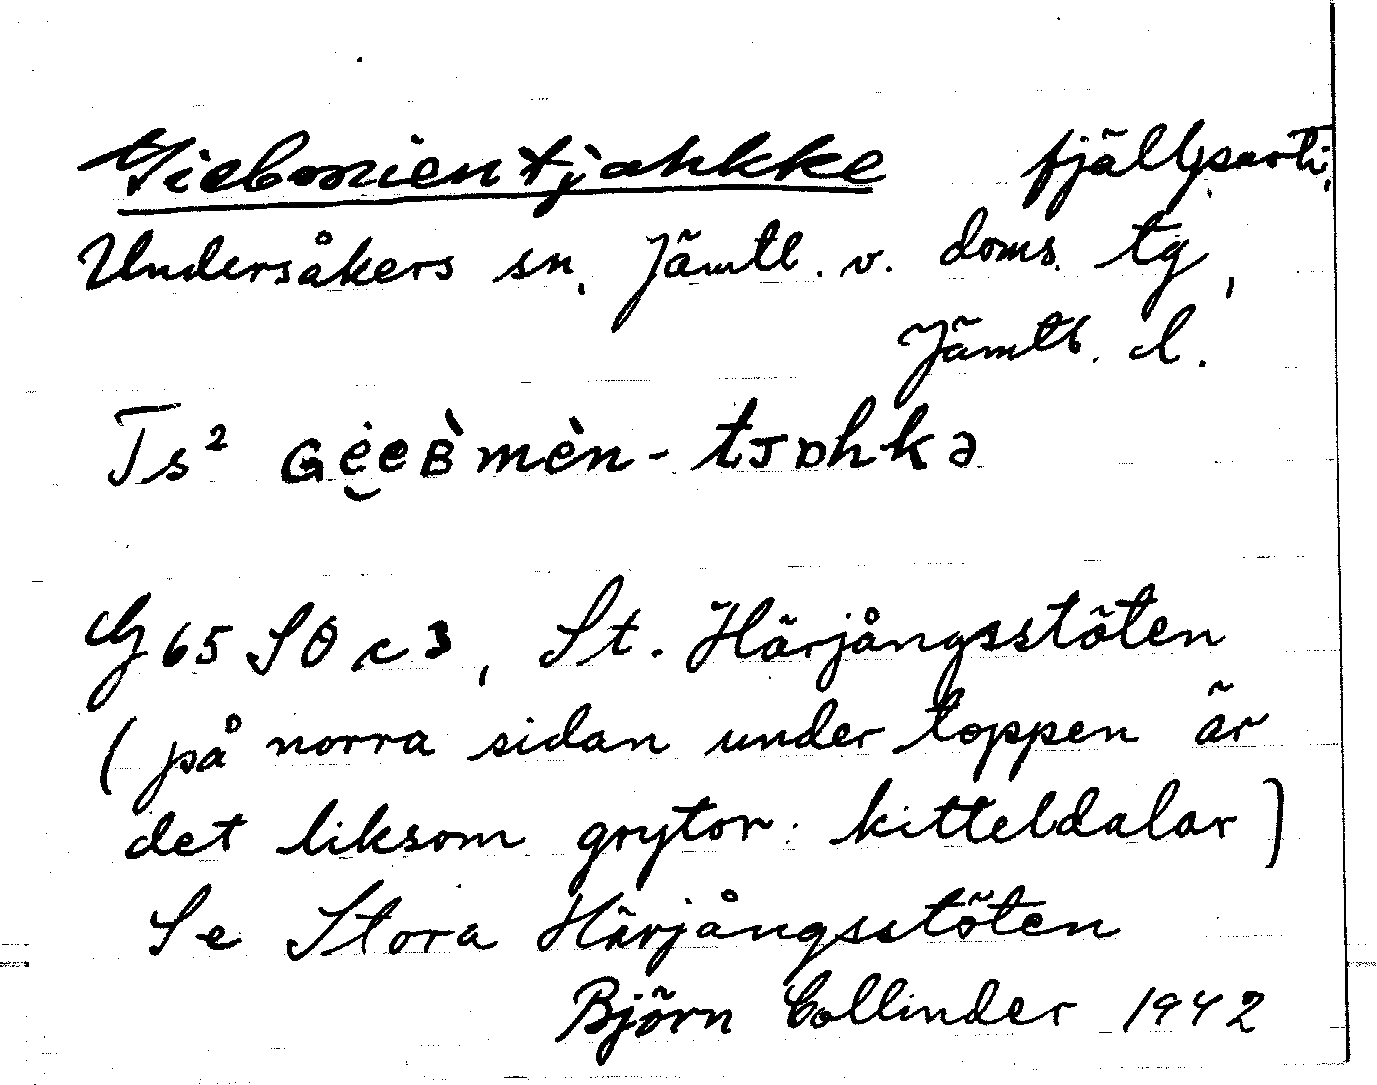 Giebmientjahkke fjällparti,
Undersåkers sn, Jämtl. v. doms. tg,
Jämtl. l.
Ts² ɢėeʙ̀mèn-tᴊɒhkə
G 65 SO c 3, St. Härjångsstöten
(på norra sidan under toppen är
det liksom grytor: kitteldalar)
Se Stora Härjångsstöten
Björn Collinder 1942